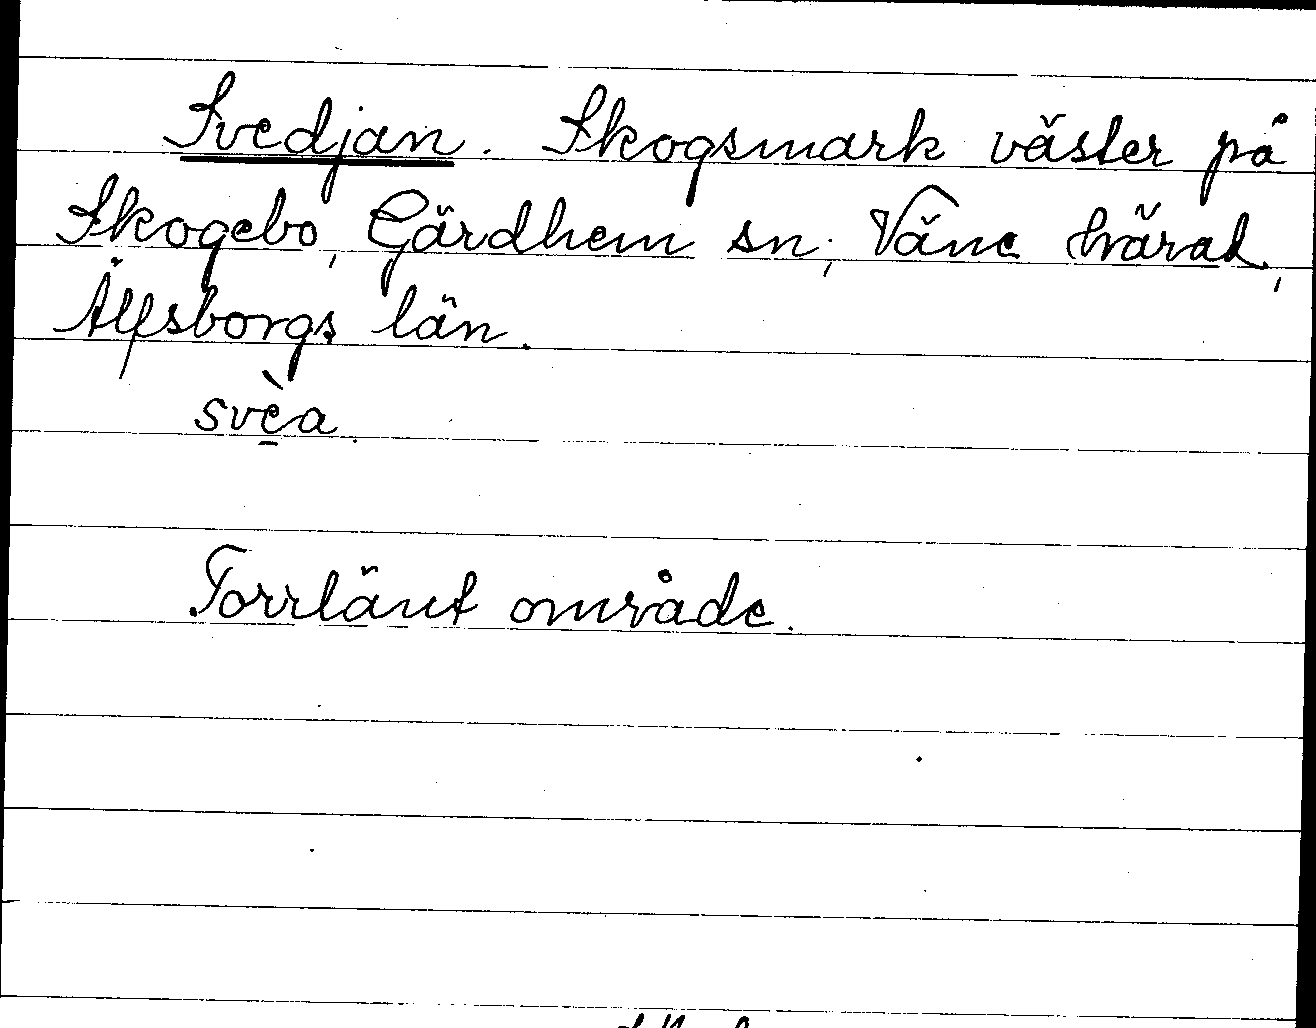 Svedjan. Skogsmark väster på
Skogebo, Gärdhem sn, Väne härad,
Älfsborgs län.
svèa.
Torrlänt område.